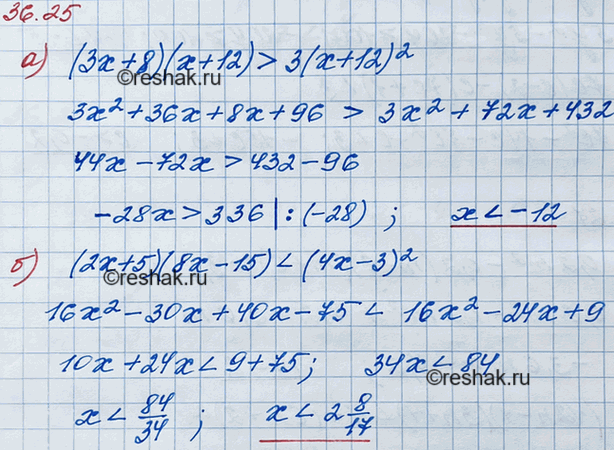 36.25
а) (3x+8)(x+12) > 3(x+12)²
©reshak.ru
3x²+36x+8x+96 > 3x²+72x+432
44x-72x > 432-96
-28x > 336 |:(-28) ; x < -12
б) (2x+5)(8x-15) < (4x-3)²
©reshak.ru
16x²-30x+40x-75 < 16x²-24x+9
10x+24x < 9+75; 34x < 84
©reshak.ru
x < 84/34 ; x < 2 8/17